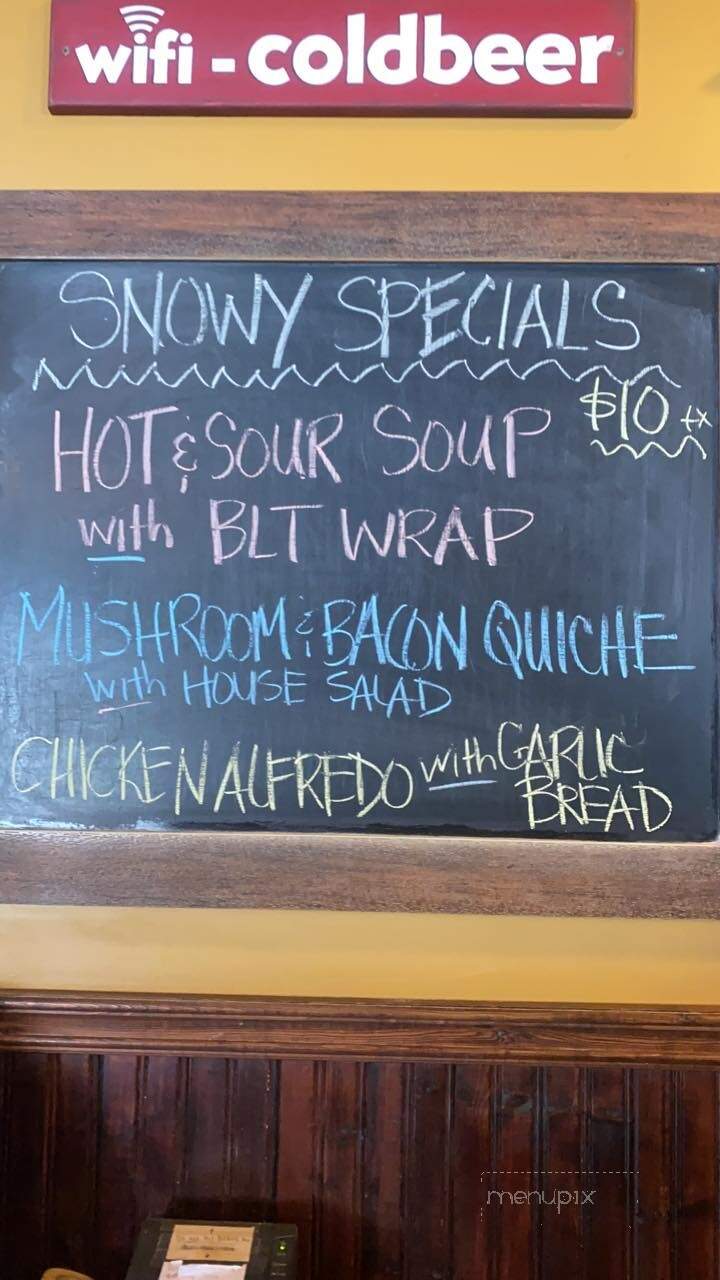 wifi - coldbeer
SNOWY SPECIALS
$10 tx
HOT & SOUR SOUP
with BLT WRAP
MUSHROOM & BACON QUICHE
with HOUSE SALAD
CHICKEN ALFREDO with GARLIC
BREAD
menupix